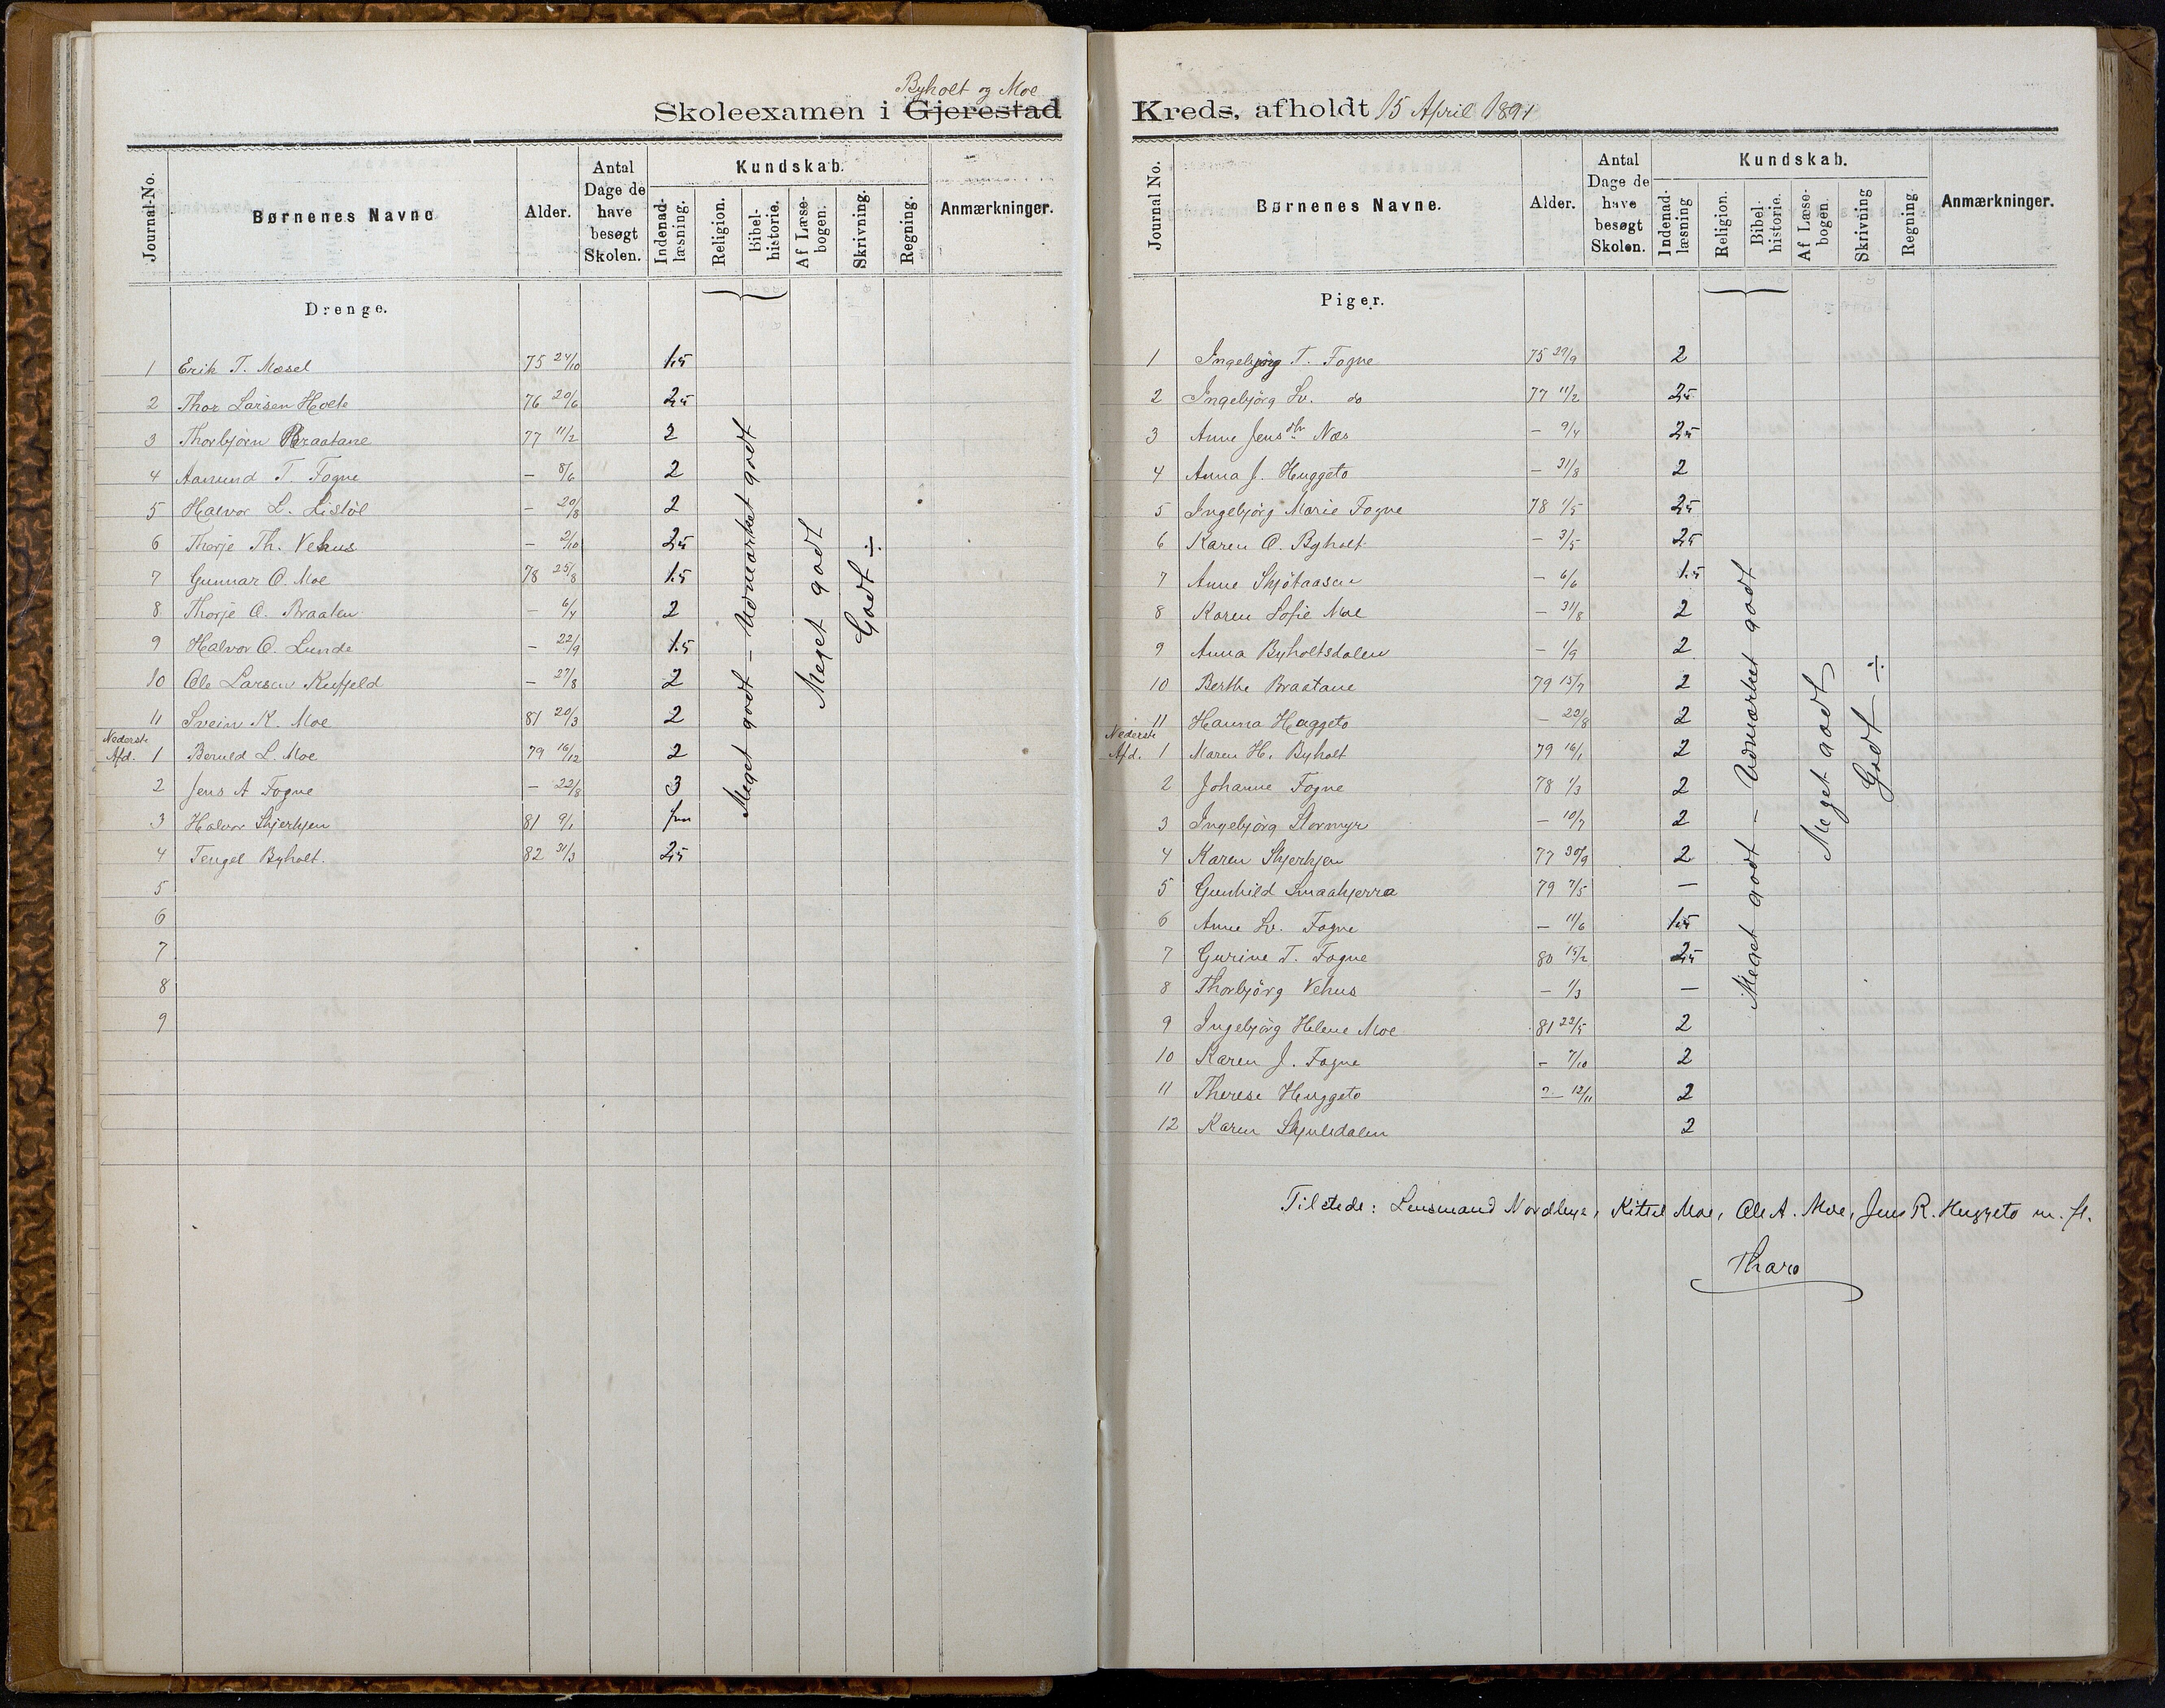 Byholt og Moe
Skoleexamen i Gjerestad
Journal-No.
Børnenes Navne
Alder.
Antal Dage de have besøgt Skolen.
Kundskab.
Indenad-læsning.
Religion.
Bibel-historie.
Af Læse-bogen.
Skrivning.
Regning.
Anmærkninger.
Drenge.
1 Erik T. Mæsel 75 24/10 1.5
2 Thor Larsen Holte 76 20/6 2,5
3 Thorbjørn Braatane 77 11/2 2
4 Aanund T. Fogne — 8/6 2
5 Halvor L. Lisløl — 20/8 2
6 Thorje Th. Vehus — 2/10 2,5
7 Gunnar O. Moe 78 25/8 1.5
8 Thorje A. Braaten — 6/4 2
9 Halvor O. Lunde — 22/9 1.5
10 Ole Larsen Refjeld — 27/8 2
11 Svein K. Moe 81 20/3 2
Nederste
Afd. 1 Beruld L. Moe 79 16/12 2
2 Jens A Fogne — 22/8 3
3 Halvor Skjerkjen 81 9/1
4 Tengel Byholt. 82 31/3 2,5
5
6
7
8
9
Meget godt – Udmærket godt
Meget godt
Godt ÷
Kreds, afholdt 15 April 1891
Journal No.
Børnenes Navne.
Alder.
Antal Dage de have besøgt Skolen.
Kundskab.
Indenad-læsning
Religion.
Bibel-historie.
Af Læse-bogen.
Skrivning
Regning.
Anmærkninger.
Piger.
1 Ingebjørg T. Fogne 75 29/9 2
2 Ingebjörg Lv. do 77 11/2 2,5
3 Anne Jensdtr Næs — 9/4 2,5
4 Anna J. Huggeto — 31/8 2
5 Ingebjörg Marie Fogne 78 1/5 2,5
6 Karen O. Byholt — 3/5 2,5
7 Anne Skjötaasen — 6/6 1.5
8 Karen Sofie Moe — 31/8 2
9 Anna Byholtsdalen — 1/9 2
10 Berthe Braatane 79 15/7 2
11 Hanna Huggeto — 22/8 2
Nederste
Afd. 1 Maren H. Byholt 79 16/1 2
2 Johanne Fogne 78 1/3 2
3 Ingebjörg Stormyr — 10/7 2
4 Karen Skjerkjen 77 30/9 2
5 Gunhild Smaakjerra 79 7/5 —
6 Anne Lv. Fogne — 11/6 1.5
7 Gurine T. Fogne 80 15/2 2,5
8 Thorbjörg Vehus — 1/3 —
9 Ingebjörg Helene Moe 81 22/5 2
10 Karen J. Fogne — 7/10 2
11 Therese Huggeto — 12/11 2
12 Karen Skjulsdalen 2
Meget godt – Udmærket godt
Meget godt
Godt ÷
Tilstede: Lensmand Nordbye, Kittel Moe, Ole A. Moe, Jens R. Huggeto m. fl.